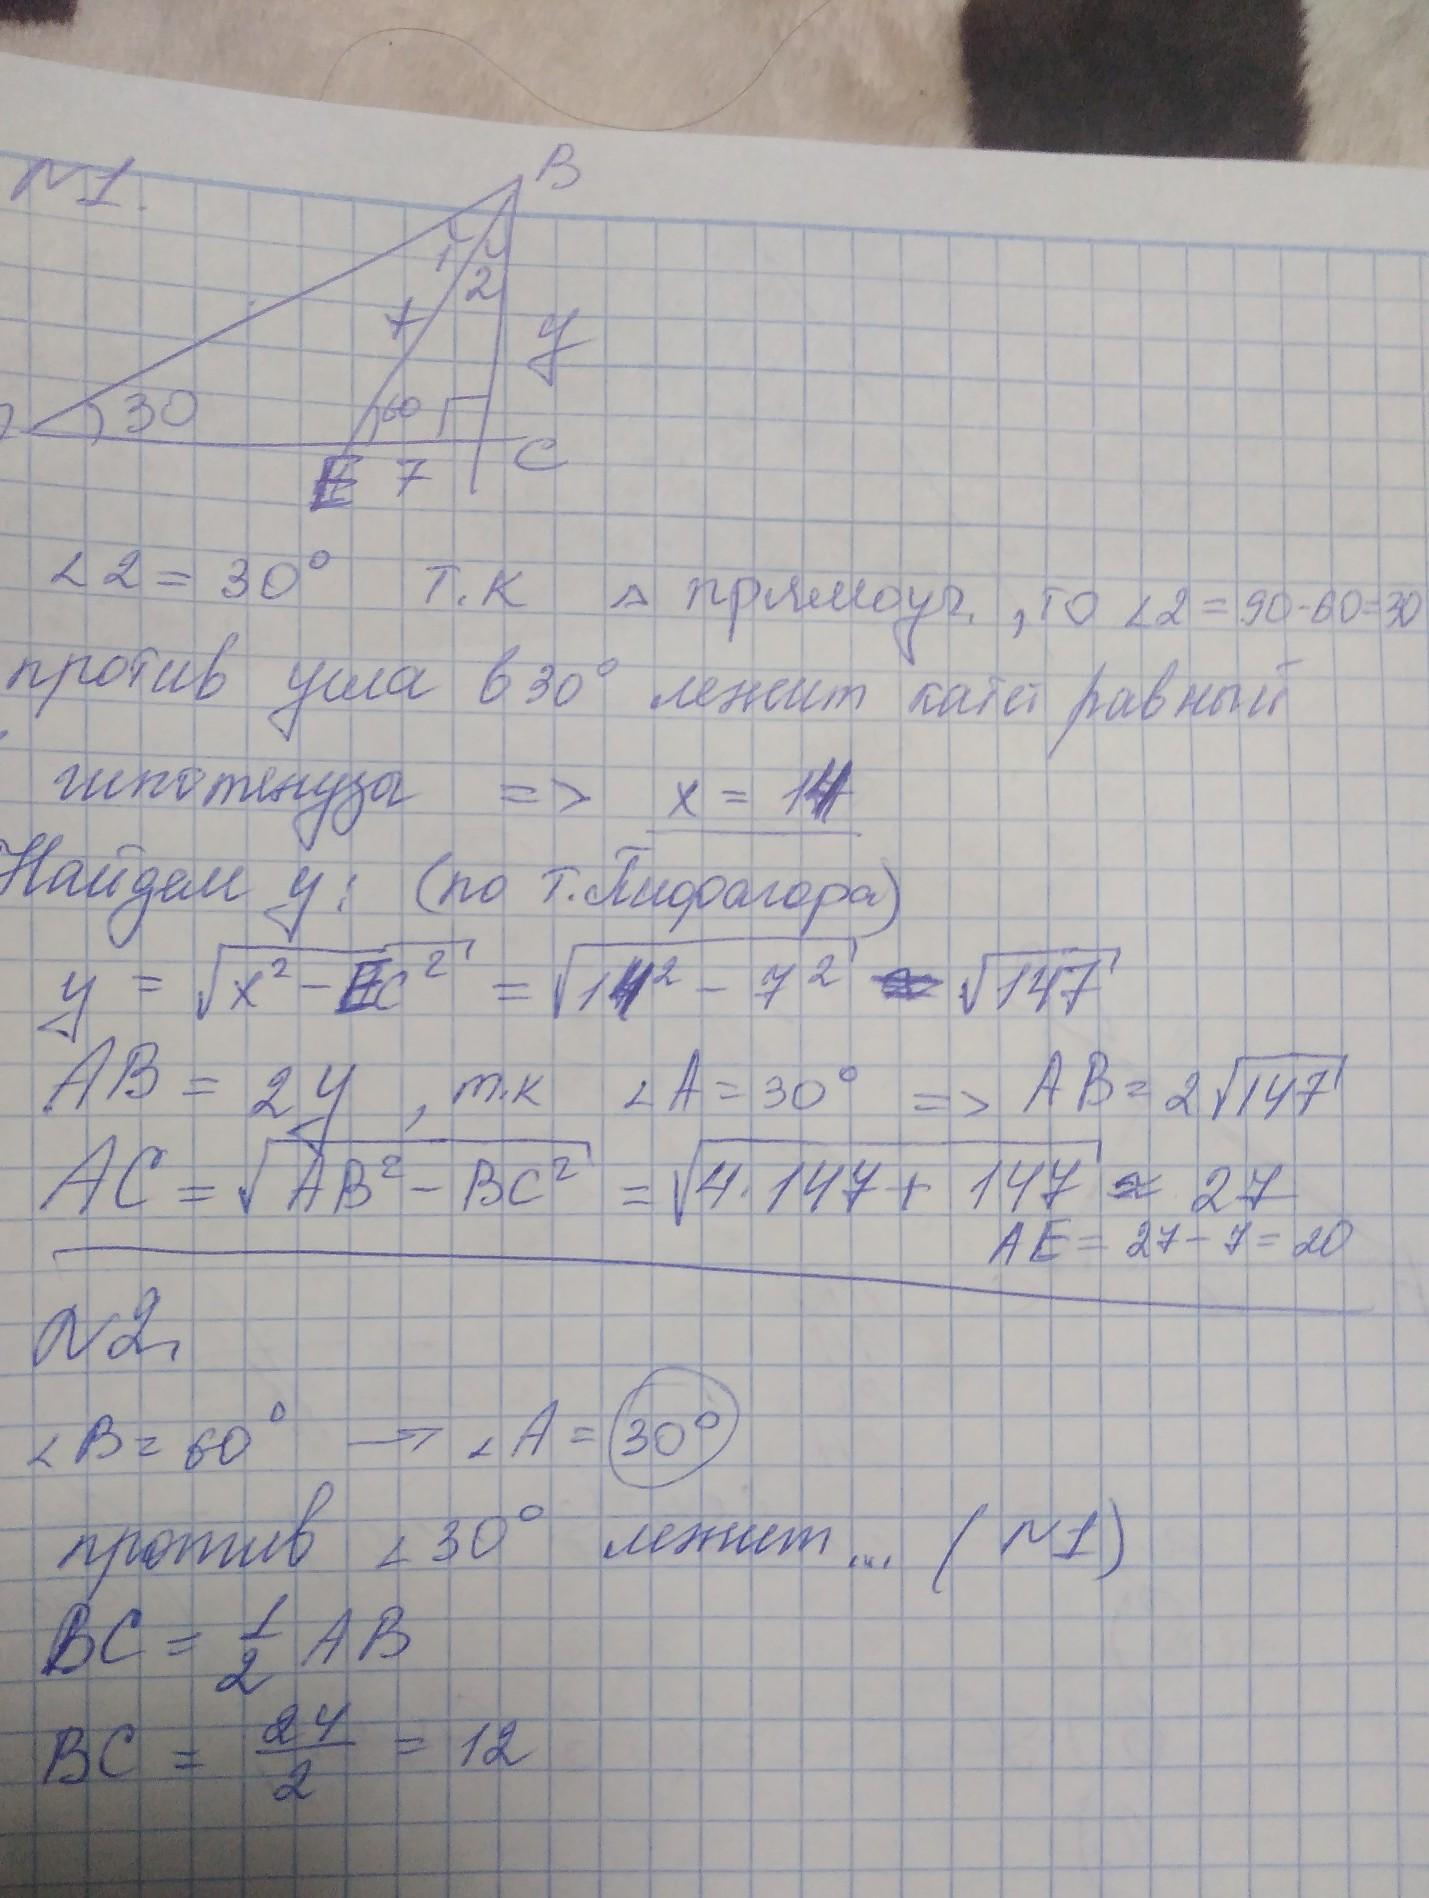 N1.
B
1
2
x
y
30
60
E 7 C
∠2 = 30° т.к △ прямоуг., то ∠2 = 90-60=30
против угла в 30° лежит катет равный
гипотенузы => x = 14
Найдем y: (по т. Пифагора)
y = √(x² - EC²) = √(14² - 7²) = √147
AB = 2y, т.к ∠A = 30° => AB = 2√147
AC = √(AB² - BC²) = √(4·147 + 147) ≈ 27
AE = 27 - 7 = 20
N2.
∠B = 60° → ∠A = 30°
против ∠30° лежит... (N1)
BC = 1/2 AB
BC = 24/2 = 12